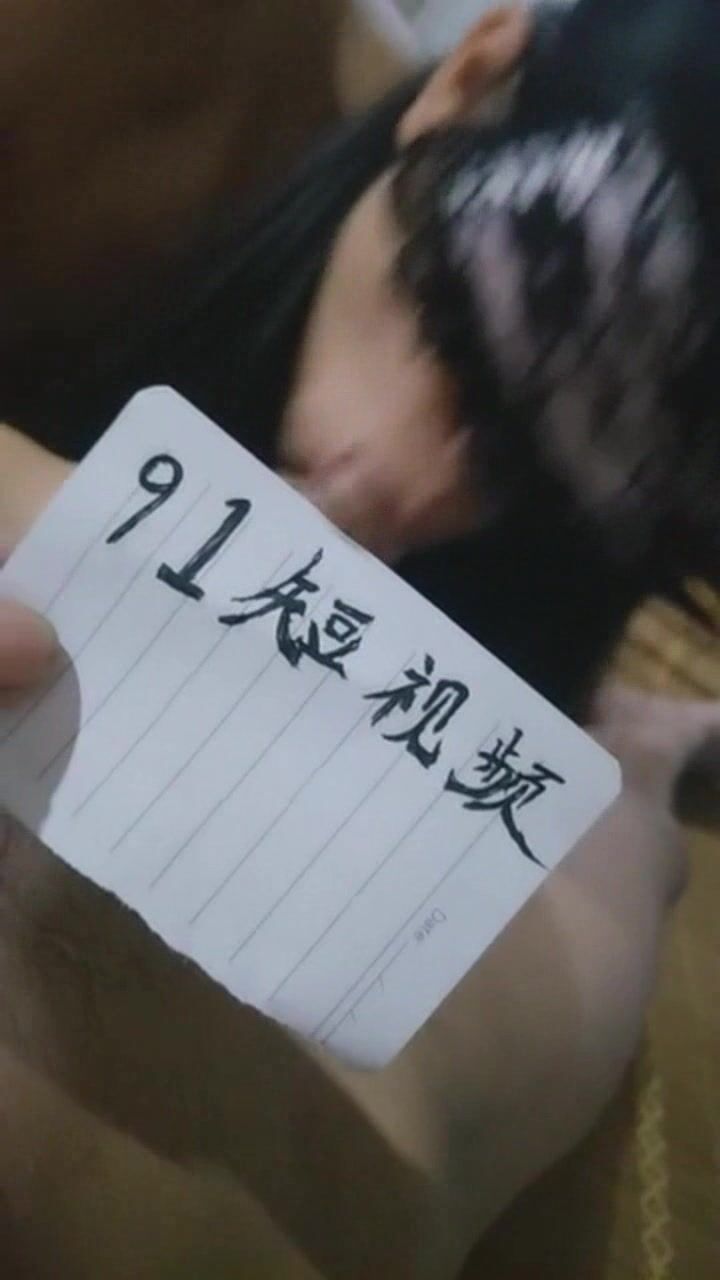 91短视频
Date